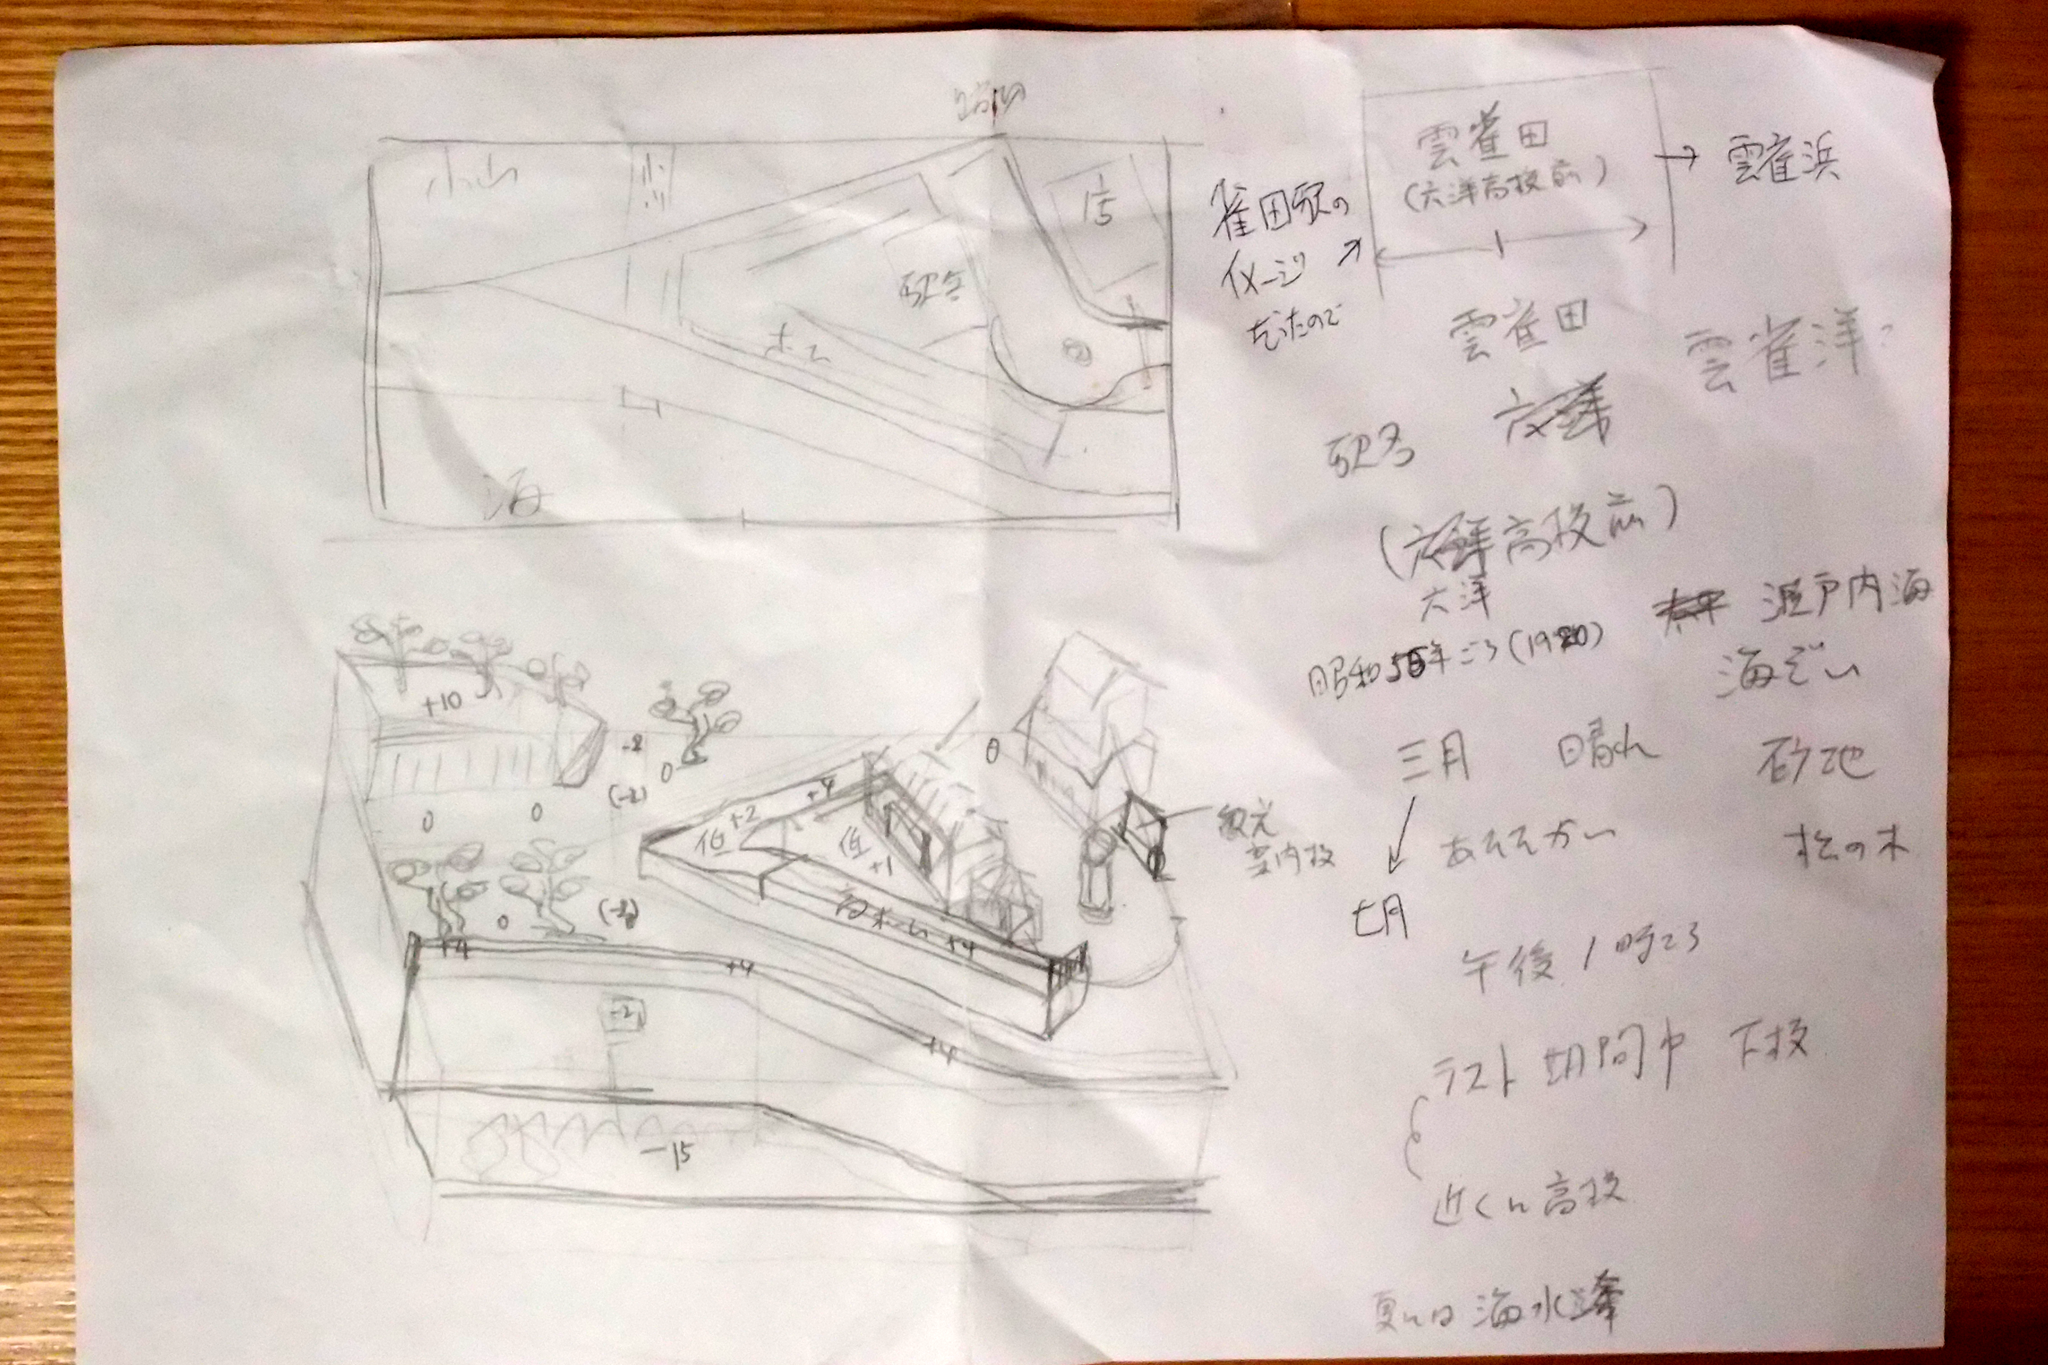 小山
小川
店
駅舎
ホーム
海
雲雀田
(大洋高校前)
→ 雲雀浜
雀田駅の
イメージ
だったので
雲雀田
雲雀洋?
駅名
(大洋高校前)
大洋
昭和55年ごろ(1980)
瀬戸内海
海ぞい
三月
晴れ
砂地
あたたかい
松の木
七月
午後1時ころ
テスト期間中 下校
近くに高校
夏には海水浴
+10
-2
(-2)
0
0
0
0
0
低
+2
+4
低
+1
高ホーム
+4
観光
案内板
+4
+4
+4
-2
-15